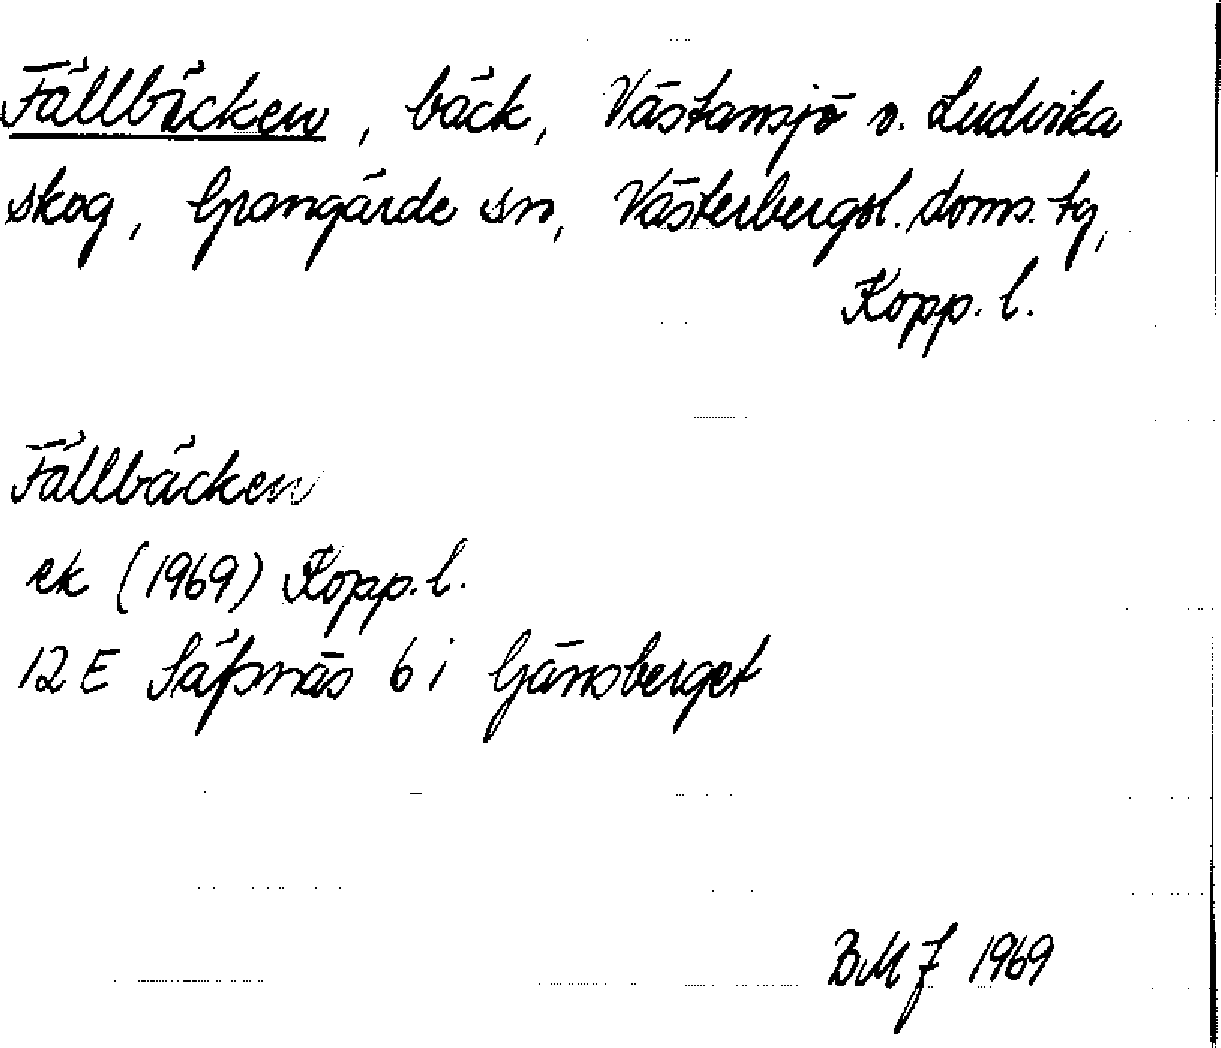 Fällbäcken, bäck, Västansjö o. Ludvika
skog, Grangärde sn, Västerbergsl. doms. tg,
Kopp. l.
Fällbäcken
ek (1969) Kopp. l.
12E Säfsnäs 6 i Gänsberget
BMJ 1969